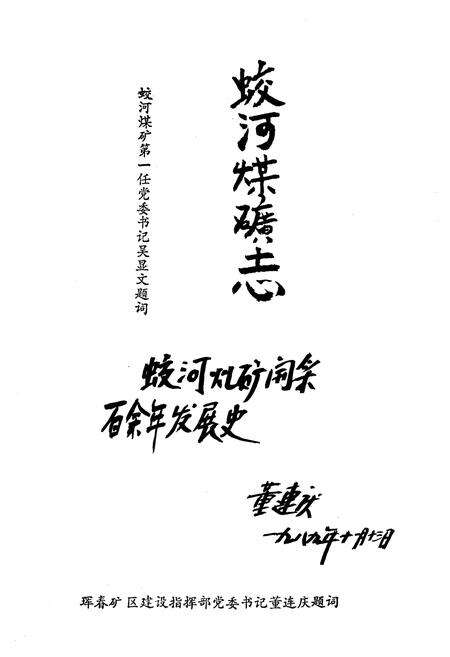 蛟河煤礦志
蛟河煤矿第一任党委书记吴显文题词
蛟河煤矿开采
百余年发展史
董連庆
一九八九年十月十三日
珲春矿区建设指挥部党委书记董连庆题词